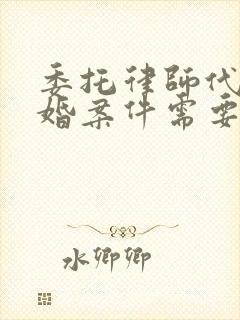 委托律师代
婚案件需要
水卿卿